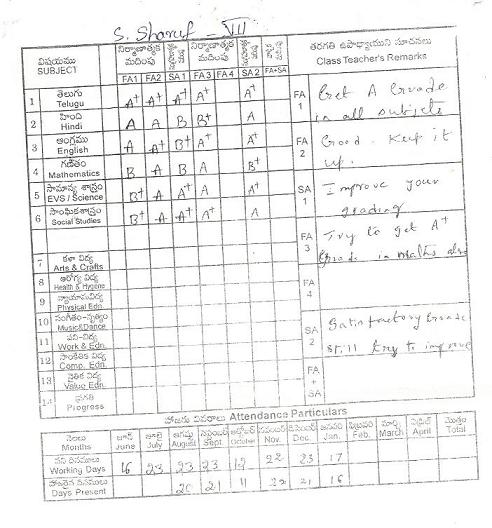 S. Sharuf - VII
విషయము నిర్మాణాత్మక మదింపు నిర్మాణాత్మక మదింపు తరగతి ఉపాధ్యాయుని సూచనలు
SUBJECT FA1 FA2 SA1 FA3 FA4 SA2 FA+SA Class Teacher's Remarks
1 తెలుగు Telugu A+ A A+ A+ A+
2 హింది Hindi A A B B+ A
3 ఆంగ్లము English A A+ B+ A+ A+
4 గణితం Mathematics B A B A B+
5 సామాన్య శాస్త్రం EVS / Science B+ A A+ A A+
6 సాంఘికశాస్త్రం Social Studies B+ A A+ A+ A
7 కళా విద్య Arts & Crafts
8 ఆరోగ్య విద్య Health & Hygiene
9 వ్యాయామవిద్య Physical Edn.
10 సంగీతం-నృత్యం Music&Dance
11 పని-విద్య Work & Edn.
12 సాంకేతిక విద్య Comp. Edn.
13 నైతిక విద్య Value Edn.
14 ప్రగతి Progress
FA 1 Get A Grade
in all subjects
FA 2 Good. Keep it
up.
SA 1 Improve your
grading
FA 3 Try to get A+
Grade in maths also
FA 4
SA 2 Satisfactory Grade
still try to improve
FA + SA
హాజరు వివరాలు Attendance Particulars
నెలలు జూన్ జులై ఆగష్టు సెప్టెంబర్ అక్టోబర్ నవంబర్ డిసెంబర్ జనవరి ఫిబ్రవరి మార్చి ఏప్రిల్ మొత్తం
Months June July August Sept. October Nov. Dec. Jan. Feb. March April Total
పని దినములు
Working Days 16 23 23 23 12 22 23 17
హాజరైన దినములు
Days Present 20 21 11 22 21 16